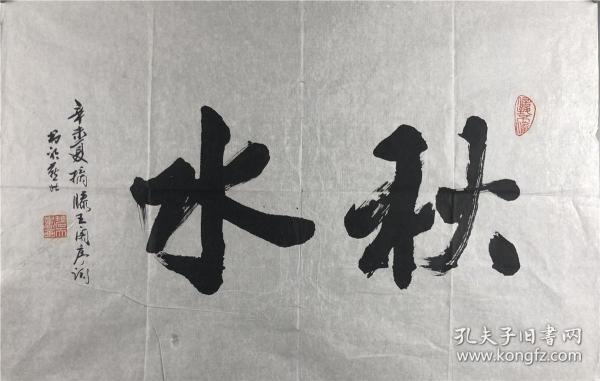 秋水
辛未夏摘滕王阁序词
孔夫子旧书网
www.kongfz.com